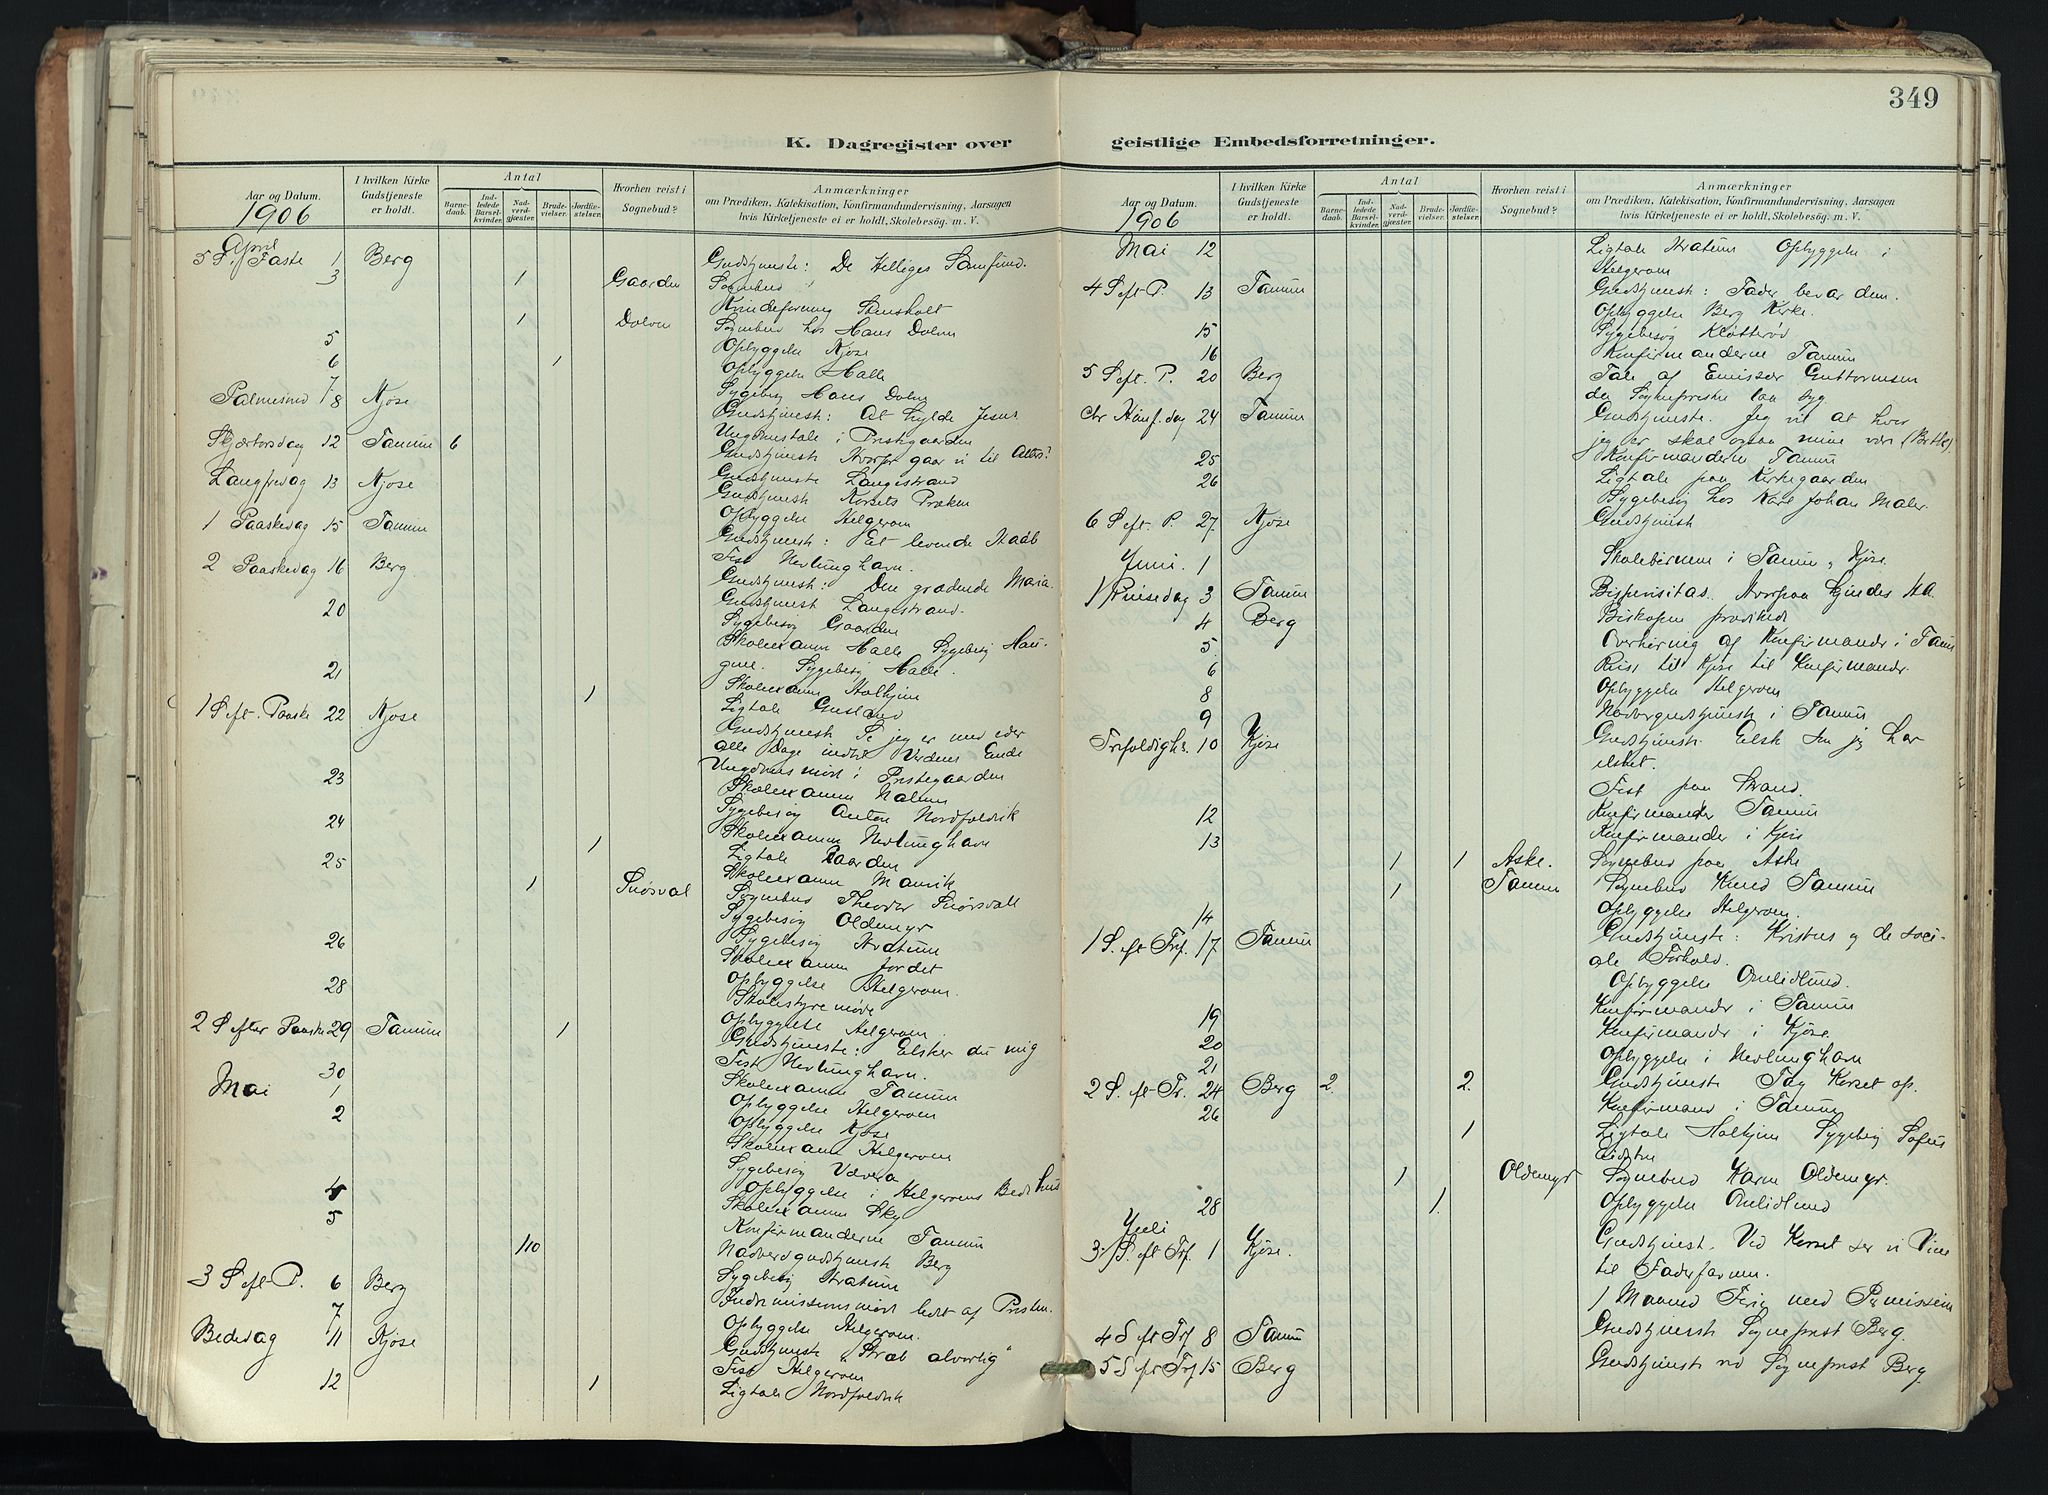 349
K. Dagregister over geistlige Embedsforretninger.
Aar og Datum.
1906
I hvilken Kirke Gudstjeneste er holdt.
Antal
Barnedaab.
Indledede Barselkvinder.
Nadverdgjæster.
Brudevielser.
Jordfæstelser.
Hvorhen reist i Sognebud?
Anmærkninger
om Prædiken, Katekisation, Konfirmandundervisning, Aarsagen
hvis Kirketjeneste ei er holdt, Skolebesøg m. V.
April
5 S. i Faste 1 Berg Gudstjeneste: De Helliges Samfund.
3 1 Gaarden Sognebud
Kvindeforening Stensholt
1 Dolven Sognebud hos Hans Dolven
5 Opbyggelse Kjose
6 1 Opbyggelse Halle
7 Sygebesøg Hans Dolven
Palmesønd 8 Kjose Gudstjeneste: At hylde Jesus
Ungdomstale i Prestegaarden
Skjærtorsdag 12 Tanum 6 Gudstjeneste Hvorfor gaar vi til Alters?
Gudstjeneste Langestrand
Langfredag 13 Kjose Gudstjeneste Korsets Præken
Opbyggelse Helgeroen
1 Paaskedag 15 Tanum Gudstjeneste: Et levende Haab
Fest Nevlunghavn.
2 Paaskedag 16 Berg Gudstjeneste: Den grædende Maria
Gudstjeneste Langestrand.
20 Sygebesøg Gaarden
Skoleexamen Halle Sygebesøg Hau-
gene. Sygebesøg Halle.
21 Skoleexamen Holhjem
1 Ligtale Gusland
1 S. eft. Paaske 22 Kjose Gudstjeneste Se jeg er med eder
alle Dage indtil Verdens Ende
Ungdomsmøde i Prestegaarden
23 Skoleexamen Nalum
Sygebesøg Anton Nordfoldvik
24 Skoleexamen Nevlunghavn
1 Ligtale Gaarden
25 Skoleexamen Manvik
1 Snørsval Sognebud Theodor Snørsvall
Sygebesøg Oldemyr
26 Sygebesøg Hratum
Skoleexamen Jordet
28 Opbyggelse Helgeroen.
Skolestyremøde
Opbyggelse Helgeroen.
2 S efter Paaske 29 Tanum 1 Gudstjeneste: Elsker du mig
Fest Nevlunghavn.
30 Skoleexamen Tanum
Mai 1 Opbyggelse Helgeroen
2 Opbyggelse Kjose
Skoleexamen Helgeroen
Sygebesøg Vevera
4 Opbyggelse i Helgeroens Bedehus
5 Skoleexamen Sky
Konfirmanderne Tanum
110 Nadverdgudstjeneste Berg
3 S eft. P. 6 Berg Sygebesøg Hratum
7 Indremissionsmøde ledet af Presten.
Opbyggelse Helgeroen.
Bededag 11 Kjose Gudstjeneste "Stræb alvorlig"
Fest Helgeroen
12 1 Ligtale Nordfoldvik
Aar og Datum.
1906
I hvilken Kirke Gudstjeneste er holdt.
Antal
Barnedaab.
Indledede Barselkvinder.
Nadverdgjæster.
Brudevielser.
Jordfæstelser.
Hvorhen reist i Sognebud?
Anmærkninger
om Prædiken, Katekisation, Konfirmandundervisning, Aarsagen
hvis Kirketjeneste ei er holdt, Skolebesøg m. V.
Mai 12 Ligtale Hratum Opbyggelse i
Helgeroen
4 S eft P. 13 Tanum Gudstjeneste: Fader bevar dem.
Opbyggelse Berg Kirke.
15 Sygebesøg Kløtterød
16 Konfirmanderne Tanum
5 S eft. P. 20 Berg Tale af Emissær Guttormsen
da Sognepresten laa syg
Chr Himf. dag 24 Tanum Gudstjeneste. Jeg vil at hvor
jeg er skal ogsaa mine være
25 Konfirmanderne Tanum
26 Ligtale paa Kirkegaarden
Sygebesøg hos Karl Johan Maler.
6 S eft P. 27 Kjose Gudstjeneste
Juni. 1 Skolebørnene i Tanum og Kjose.
1 Pinsedag 3 Tanum Bispevisitas. Hvorpaa kjendes
4 Berg Biskopen prædikede
5 Overhøring af Konfirmander i Tanum
6 Reise til Kjose til Konfirmander.
8 Opbyggelse Helgeroen
9 Nadvergudstjeneste i Tanum
Trefoldighs. 10 Kjose Gudstjeneste. Elsk som jeg har
elsket.
Fest paa Strand.
12 Konfirmander Tanum
13 Konfirmander i Kjose
1 1 Aske. Sognebud paa Aske
1 Tanum Sognebud Knud Tanum
14 Opbyggelse Helgeroen.
1 S. eft Tref. 17 Tanum Gudstjeneste: Kristus og de soci-
ale Forhold.
Opbyggelse Omlidlund.
19 Konfirmander i Tanum
20 Konfirmander i Kjose.
21 Opbyggelse i Nevlunghavn
2 S. eft Tr. 24 Berg 2. 2. Gudstjeneste Tag Korset op.
26 Konfirmand i Tanum
1 Ligtale Holhjem Sygebesøg Sofus
Eidsten
1 Oldemyr Sognebud Karen Oldemyr.
28 1. Opbyggelse Omlidlund
Juli
3 S. eft Tref. 1 Kjose. Gudstjeneste. Ved Korset ser vi Veien
til Faderfavnen.
1 Maaned Ferie med Permission
4 S eft Trf 8 Tanum Gudstjeneste Sogneprest Berg.
5 S eft Trf 15 Berg Gudstjeneste ved Sogneprest Berg.